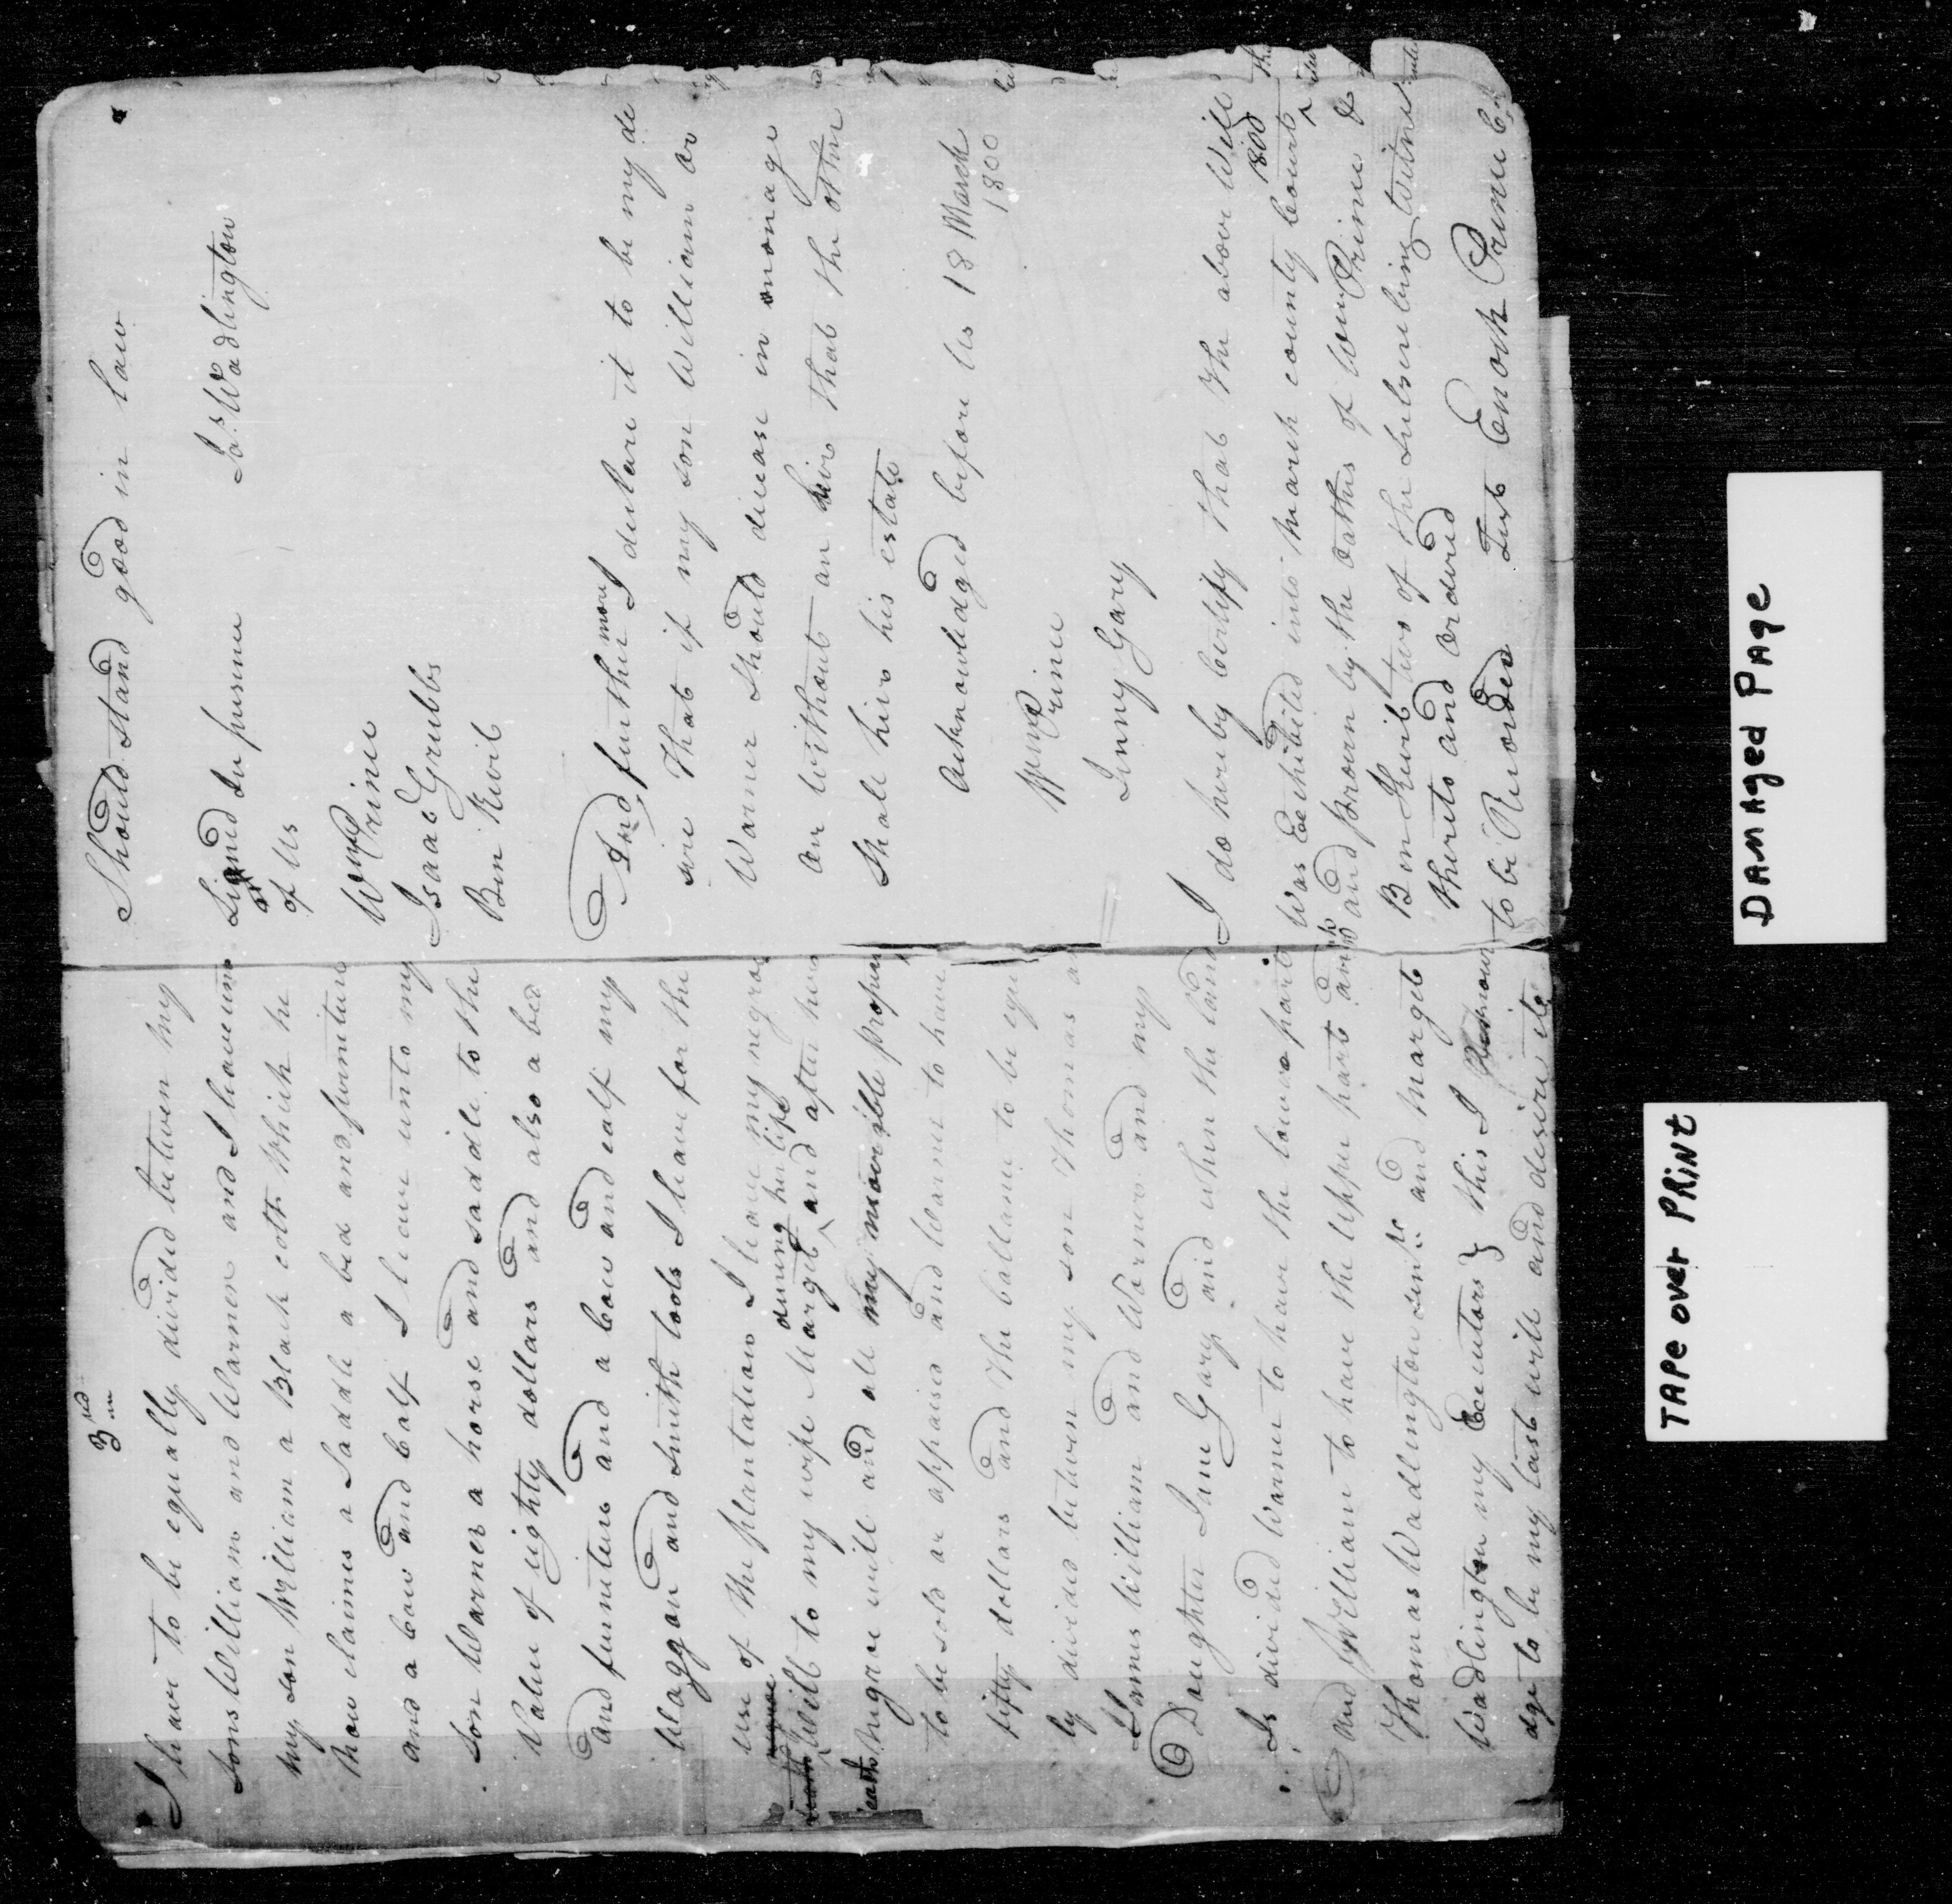 3rd
I have to be equally divided between my
sons William and Warner and I leave unto
my son William a Black colt which he
now claimes a Saddle a bed and furniture
and a cow and calf I leave unto my
son Warner a horse and saddle to the
Value of eighty dollars and also a bed
and furniture and a cow and calf my
Waggon and smith tools I leave for the
use of the plantation I leave my negroe
during her life
Will to my wife Marget and after her
death
Negroe will and all my moovible proper
to be sold or appraised and Warner to have
fifty dollars and the ballance to be equ
ly divided between my son Thomas
James William and Warner and my
Daughter Jane Gary and when the land
Is divided Warner to have the lower part
and William to have the upper part and
Thomas Wadlington senr and Marget
Wadlington my Executors this I
dge to be my last will and desire its
Should stand good in law
Signed In presence Jas Wadlington
of Us
Wm Prince
Isaac Grubbs
Ben Kevil
And further more I declare it to be my de
sire That if my son William or
Warner Should decease in nonage
or without an heir that the other
Shall heir his estate
Acknowledged before Us 18 March
1800
Wm Prince
Jenny Gary
I do hereby Certify that the above Will
1800
Was Exhibited into March county Court
and proven by the oaths of Wm Prince &
Ben Kevil two of the Subscribing Witnes
thereto and ordered
to be Recorded Test Enoch Prince
DAMAGED PAGE
TAPE over PRINT